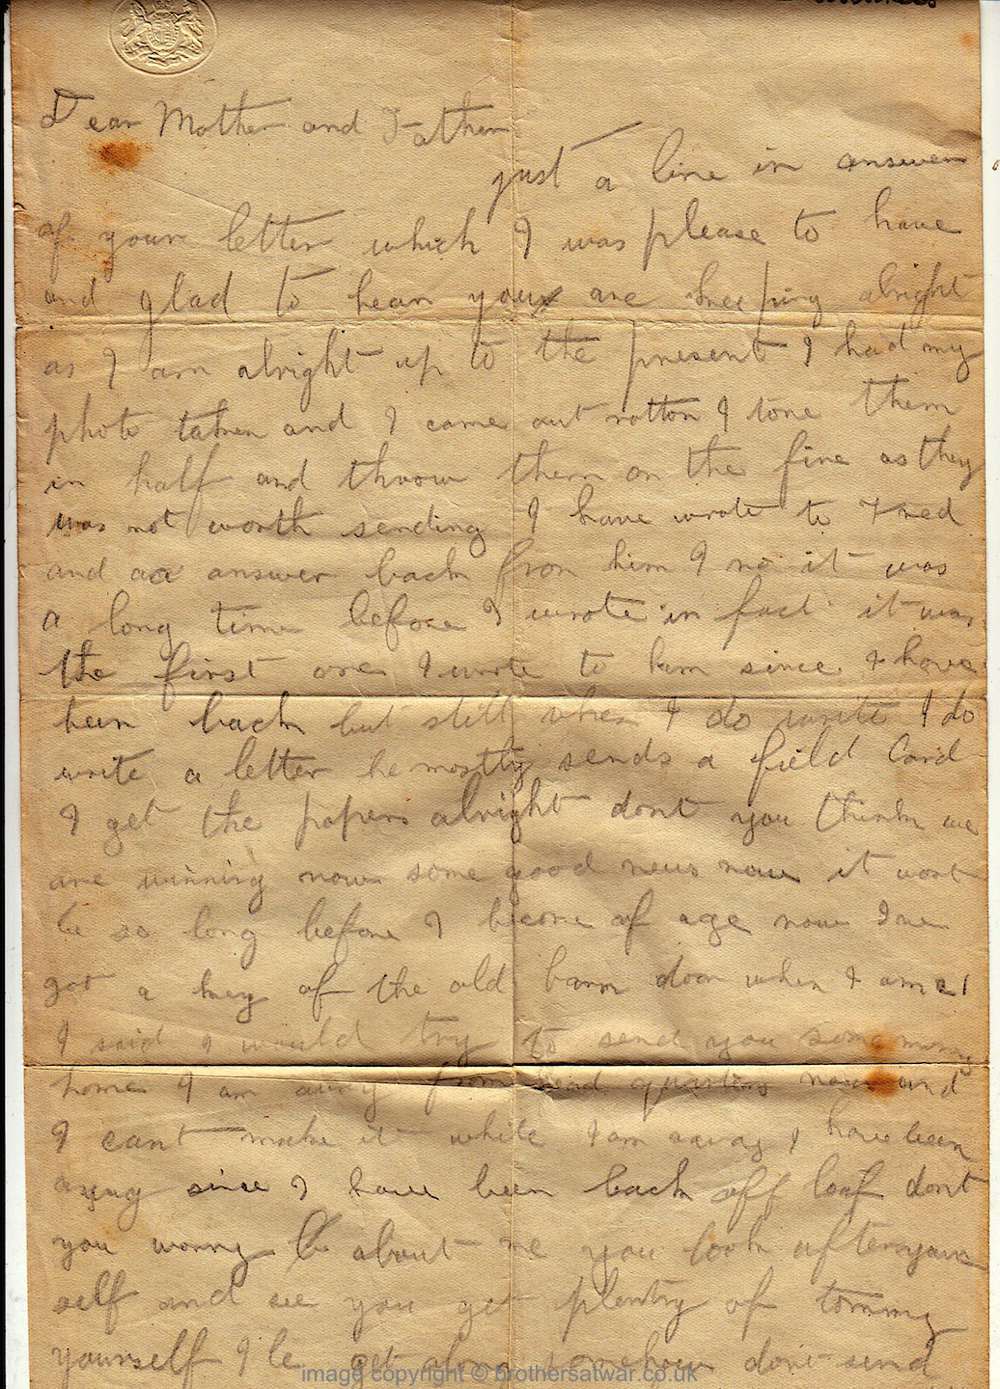 Dear Mother and Father
just a line in answer
of your letter which I was please to have
and glad to hear your are keeping alright
as I am alright up to the present I had my
photo taken and I came out rotton I tore them
in half and throw them on the fire as they
was not worth sending I have wrote to Fred
and answer back from him I no it was
a long time before I wrote in fact it was
the first one I wrote to him since I have
been back but still when I do write I do
write a letter he mostly sends a field Card
I get the papers alright dont you think we
are winning now some good news now it wont
be so long before I become of age now Ive
got a key of the old barn door when I am 21
I said I would try to send you some money
home I am away from head quarters now and
I cant make it while I am away I have been
away since I have been back off leaf dont
you worry about me you look after your
self and see you get plenty of tommy
yourself I le get along somehow dont send
image copyright © brothersatwar.co.uk